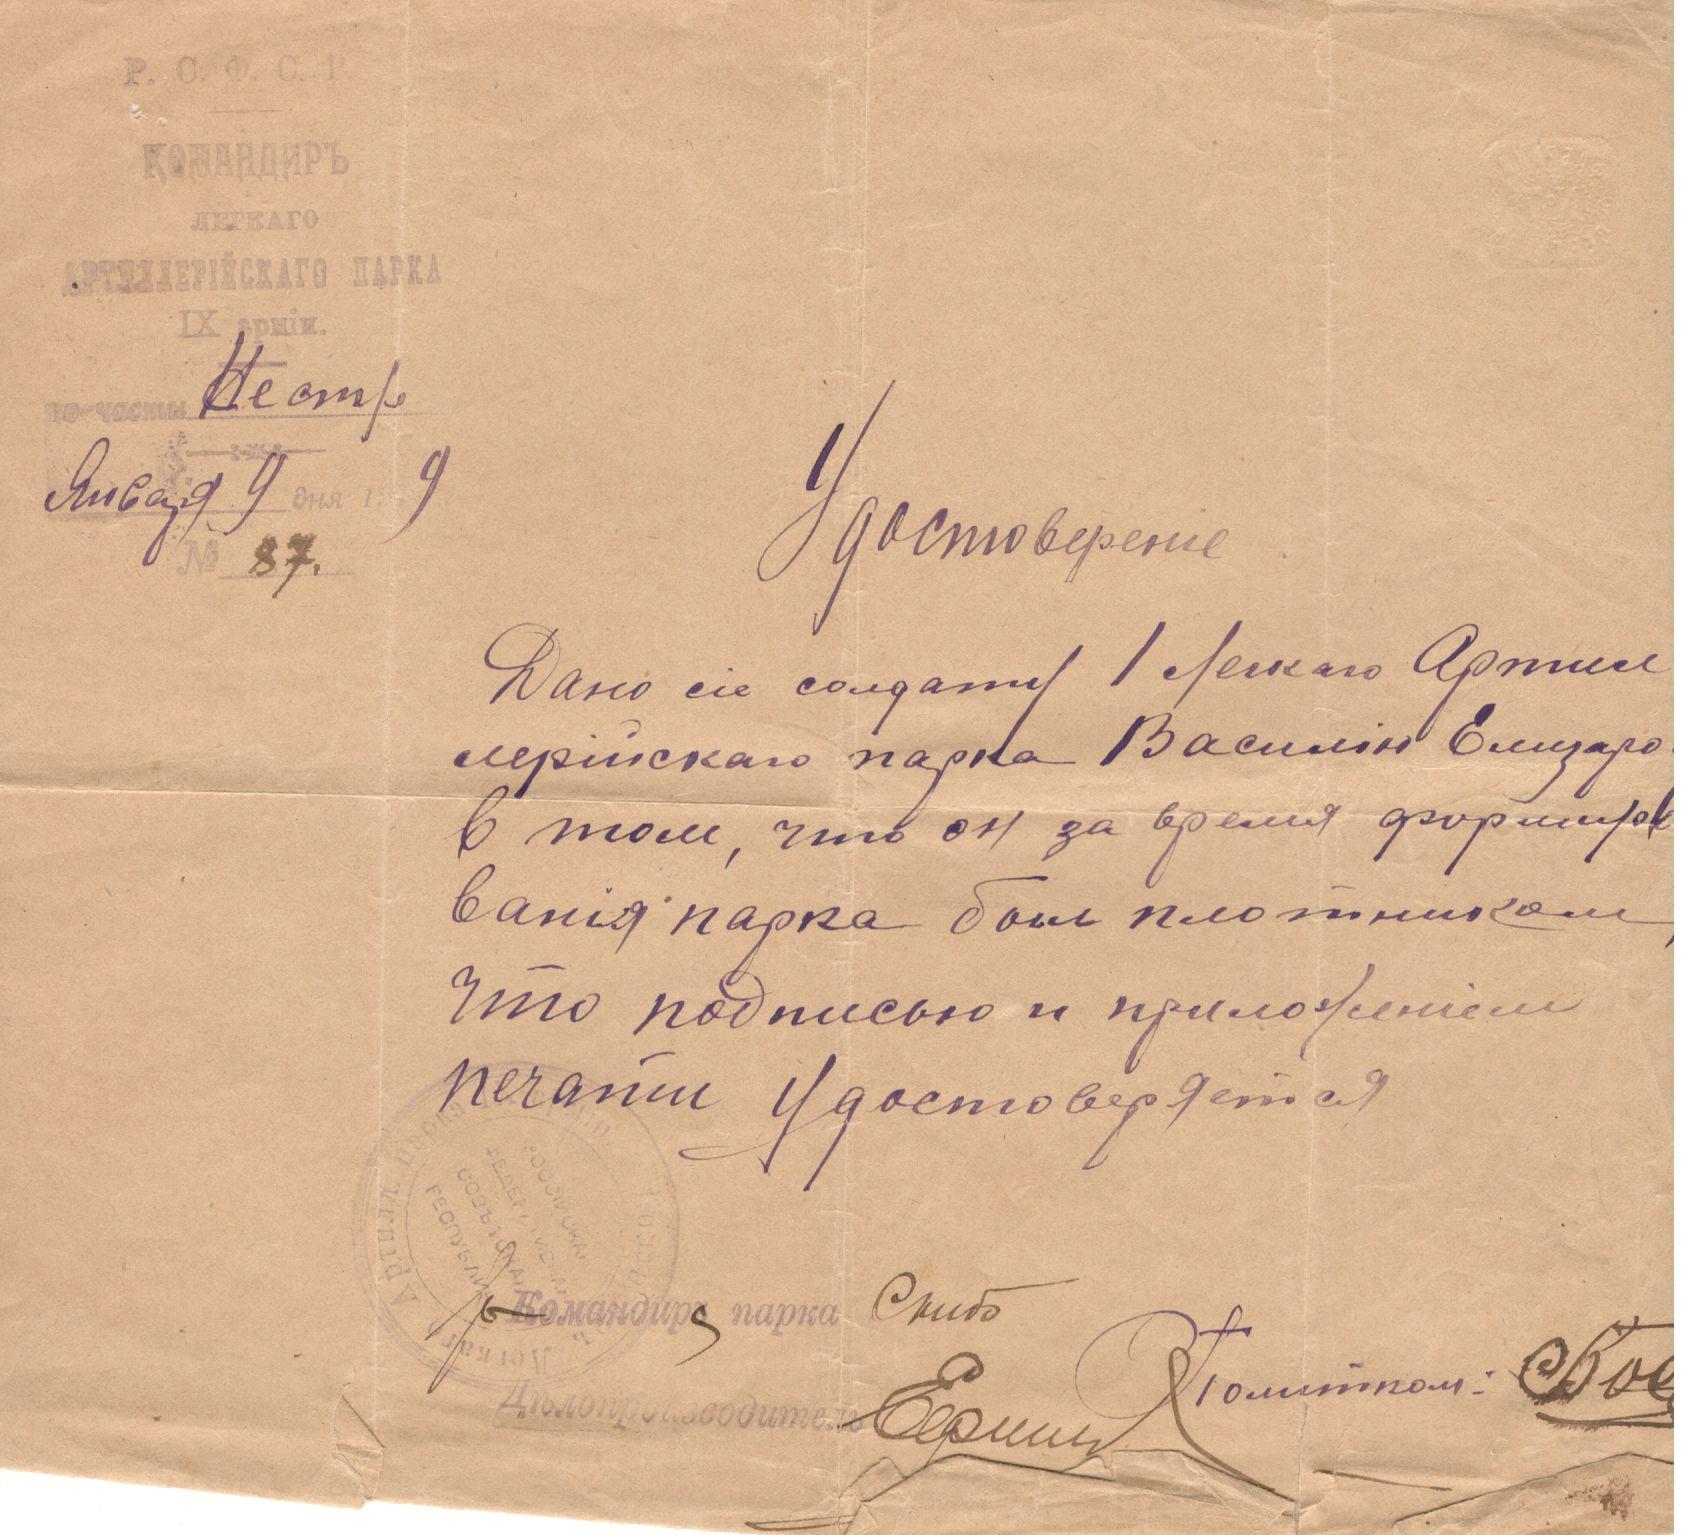 Р. С. Ф. С. Р.
КОМАНДИРЪ
ЛЕГКАГО
АРТИЛЛЕРІЙСКАГО ПАРКА
IX арміи.
по части Нестр
Января 9 дня 1 9
№ 87.
Удостоверение
Дано сіе солдату 1 Легкаго Артил
лерійскаго парка Василію Елизаро
в том, что он за время формиро
ванія парка был плотником,
что подписью и приложеніем
печати Удостоверяется
Легкаго Артил
РОССІЙСКАЯ
ФЕДЕРАТИВНАЯ
СОВѢТСКАЯ
РЕСПУБЛИКА
Командиръ парка Скибо
Политком:
Дѣлопроизводитель